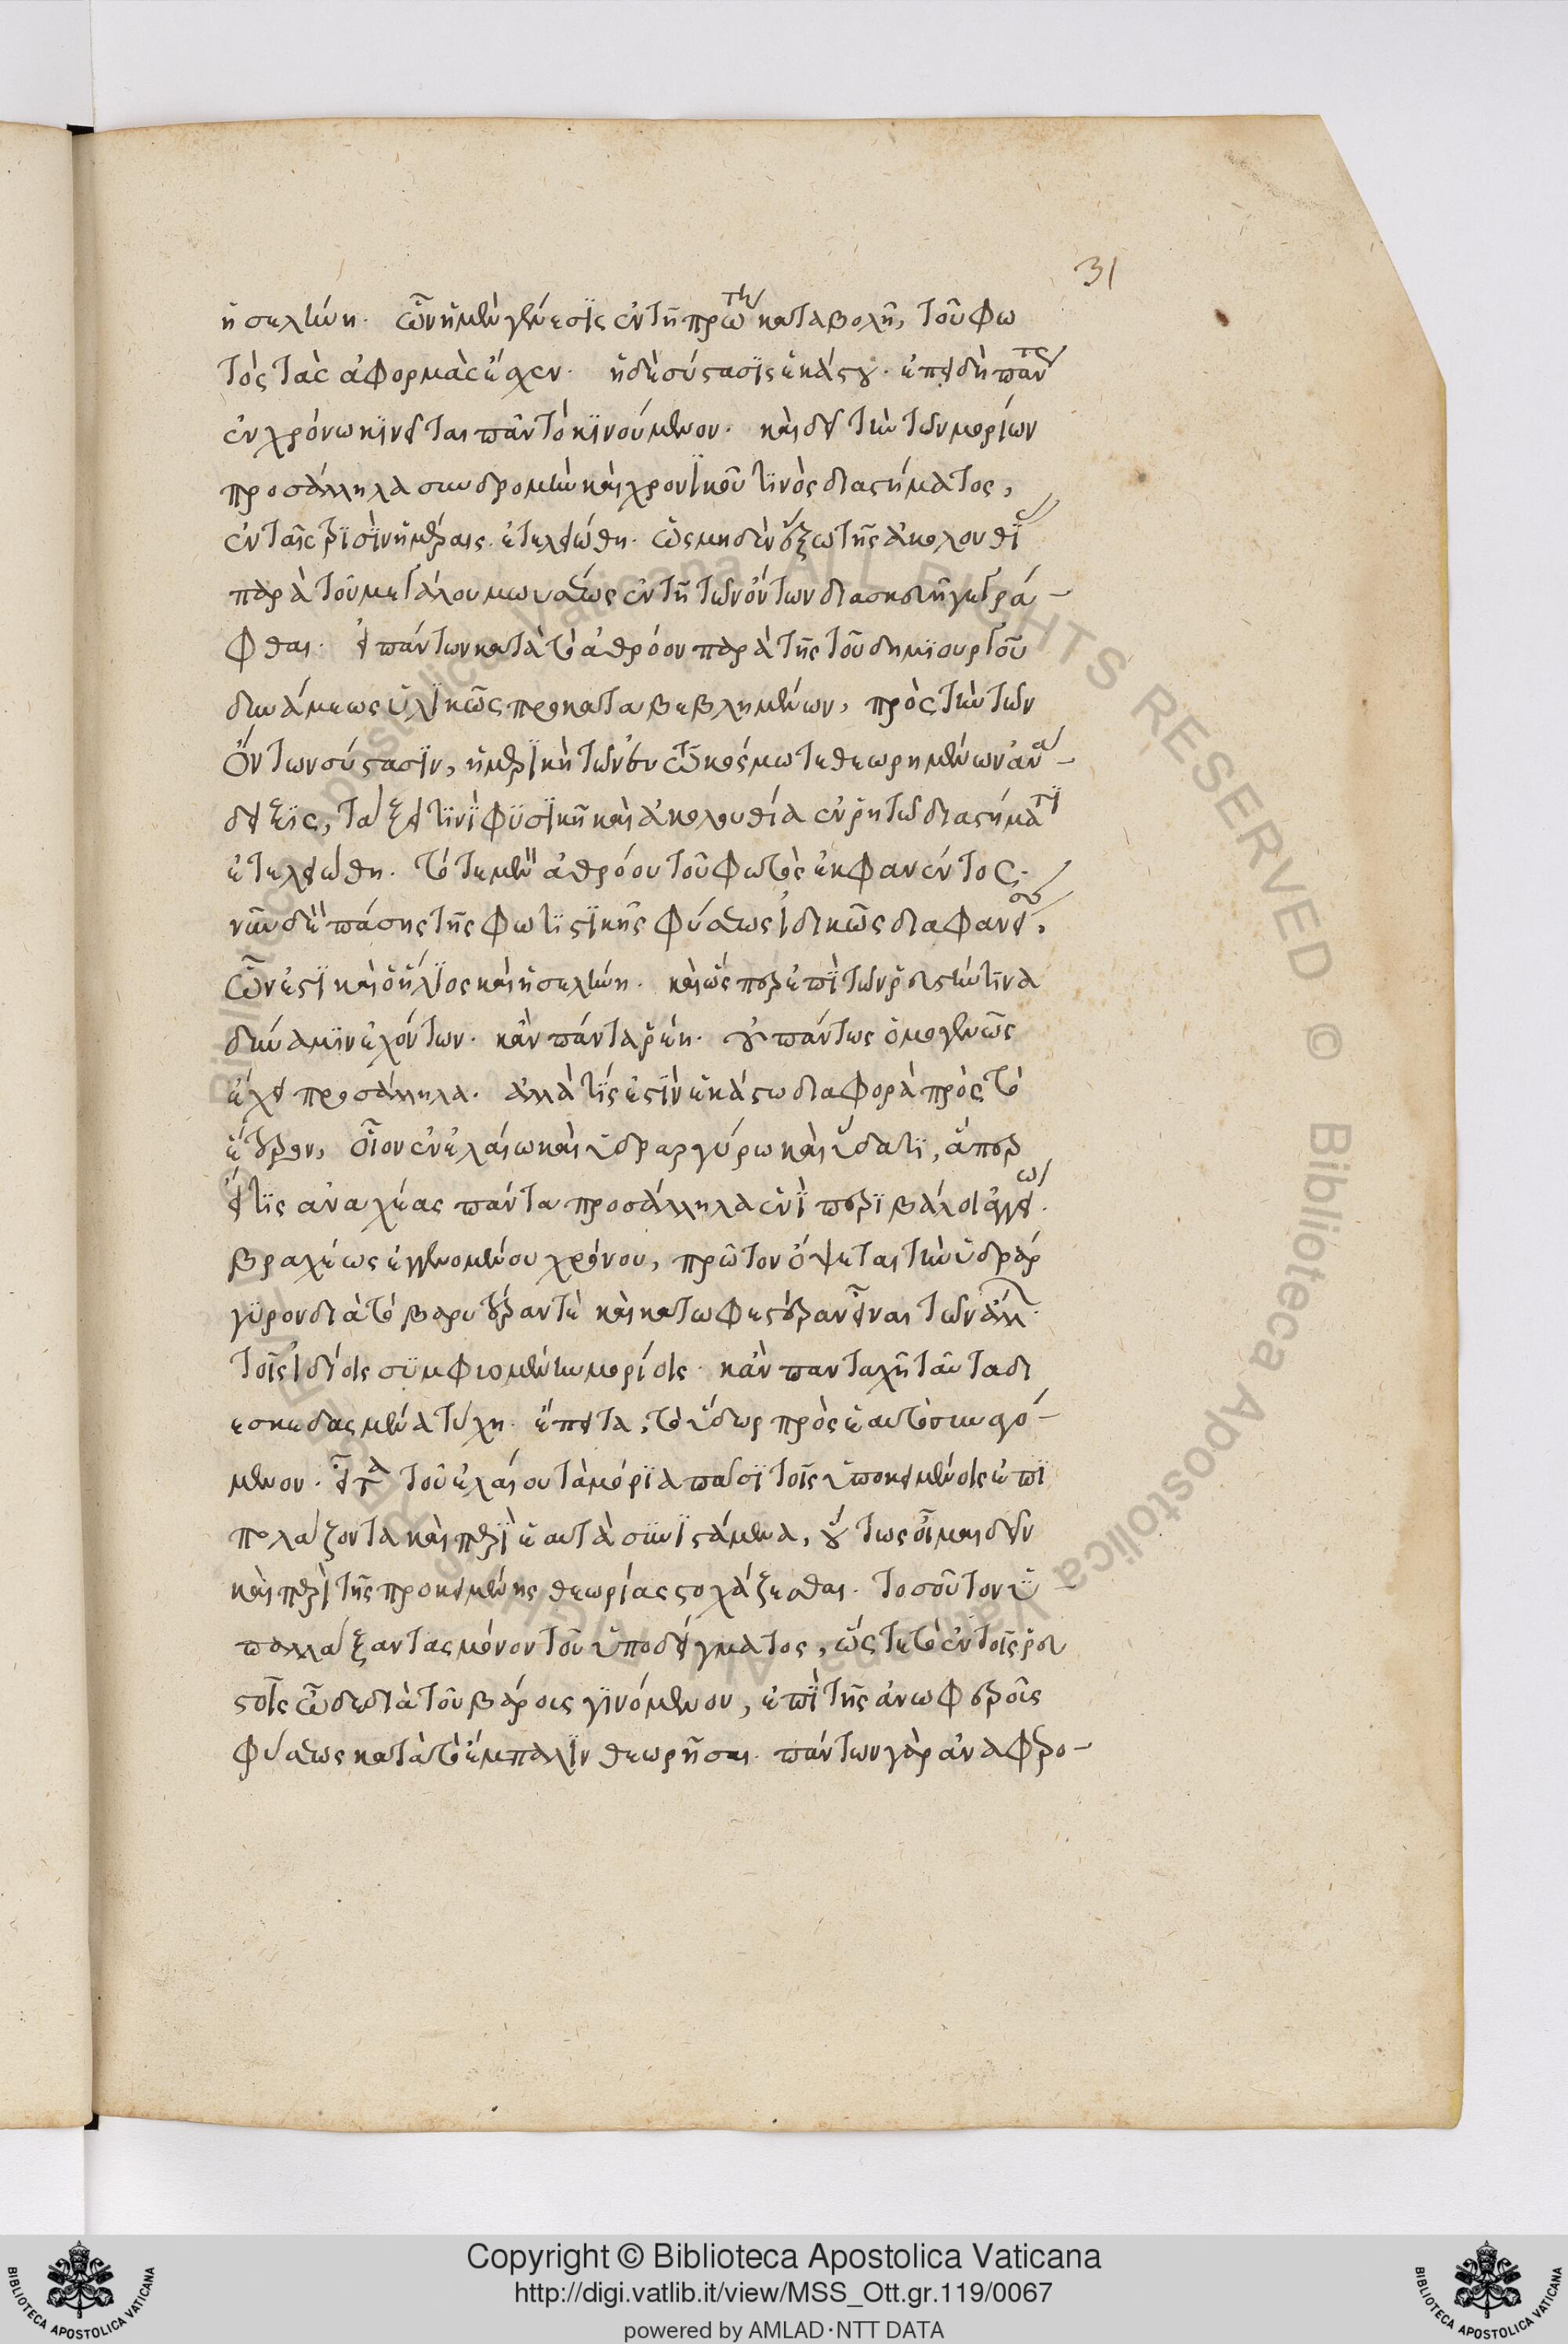 31
ἡ σελήνη. ὧν ἡ μὲν γένεσις ἐν τῇ πρώτη καταβολῇ, τοῦ φω
τὸς τὰς ἀφορμὰς ἔσχεν. ἡ δὲ σύστασις ἑκάστου. ἐπειδὴ πάντως
ἐν χρόνω κινεῖται πᾶν τὸ κινούμενον. καὶ δεῖ τὴν τῶν μορίων
προσάλληλα συνδρομὴν καὶ χρονικοῦ τινὸς διαστήματος,
ἐν ταῖς τρισὶν ἡμέραις ἐτελειώθη. ὡς μηδὲν ἔξω τῆς ἀκολουθί
παρὰ τοῦ μεγάλου μωυσέως ἐν τῇ τῶν ὄντων διασκευῆ γεγρά-
φθαι. εἰ πάντων κατὰ τὸ ἀθρόον παρὰ τῆς τοῦ δημιουργοῦ
δυνάμεως ὑλικῶς προκαταβεβλημένων, πρὸς τὴν τῶν
ὄντων σύστασιν, ἡ μερικὴ τῶν ἐν τῶ κόσμω τεθεωρημένων ἀνά-
δειξις, τάξει τινὶ φυσικῇ καὶ ἀκολουθία ἐν ῥητῶ διαστήματι
ἐτελειώθη. τότε μὲν ἀθρόου τοῦ φωτὸς ἐκφανέντος.
νῦν δὲ πάσης τῆς φωτιστικῆς φύσεως ἰδικῶς διαφανείσης.
ὧν ἐστὶ καὶ ὁ ἥλιος καὶ ἡ σελήνη. καὶ ὥσπερ ἐπὶ τῶν ῥευστήν τινα
δύναμιν ἐχόντων. κἂν πάντα ῥέη. οὐ πάντως ὁμογενῶς
ἔχει προσάλληλα. ἀλλὰ τίς ἐστὶν ἑκάστω διαφορὰ πρὸς τὸ
ἕτερον, οἷον ἐν ἐλαίω καὶ ὑδραργύρω καὶ ὕδατι, ἅπερ
εἴ τις αναχέας πάντα προσάλληλα ἑνὶ περιβάλοι ἀγγείω.
βραχέως ἐγγενομένου χρόνου, πρῶτον ὄψεται τὴν ὑδράρ
γυρον διὰ τὸ βαρυτέραν τὲ καὶ κατωφεστέραν εἶναι τῶν ἄλλ.
τοῖς ἰδίοις συμφυομένην μορίοις. κἂν πανταχῆ τᾶυτα δι
εσκεδασμένα τύχη. ἔπειτα, τὸ ὕδωρ πρὸς ἑαυτὸ συναγό-
μενον. εἶτα τοῦ ἐλαίου τὰ μόρια πᾶσι τοῖς ὑποκειμένοις ἐπι
πολάζοντα καὶ περὶ ἑαυτὰ συνιστάμενα, οὕτως οἶμαι δεῖν
καὶ περὶ τῆς προκειμένης θεωρίας στοχάζεσθαι. τοσοῦτον ὑ
παλλάξαντας μόνον τοῦ ὑποδείγματος, ὥστε τὸ ἐν τοῖς ῥευ
στοῖς ὧδε διὰ τοῦ βάρους γινόμενον, ἐπὶ τῆς ἀνωφεροῦς
φύσεως κατὰ τὸ ἔμπαλιν θεωρῆσαι. πάντων γὰρ ἀναφερο-
Copyright © Biblioteca Apostolica Vaticana
http://digi.vatlib.it/view/MSS_Ott.gr.119/0067
powered by AMLAD·NTT DATA